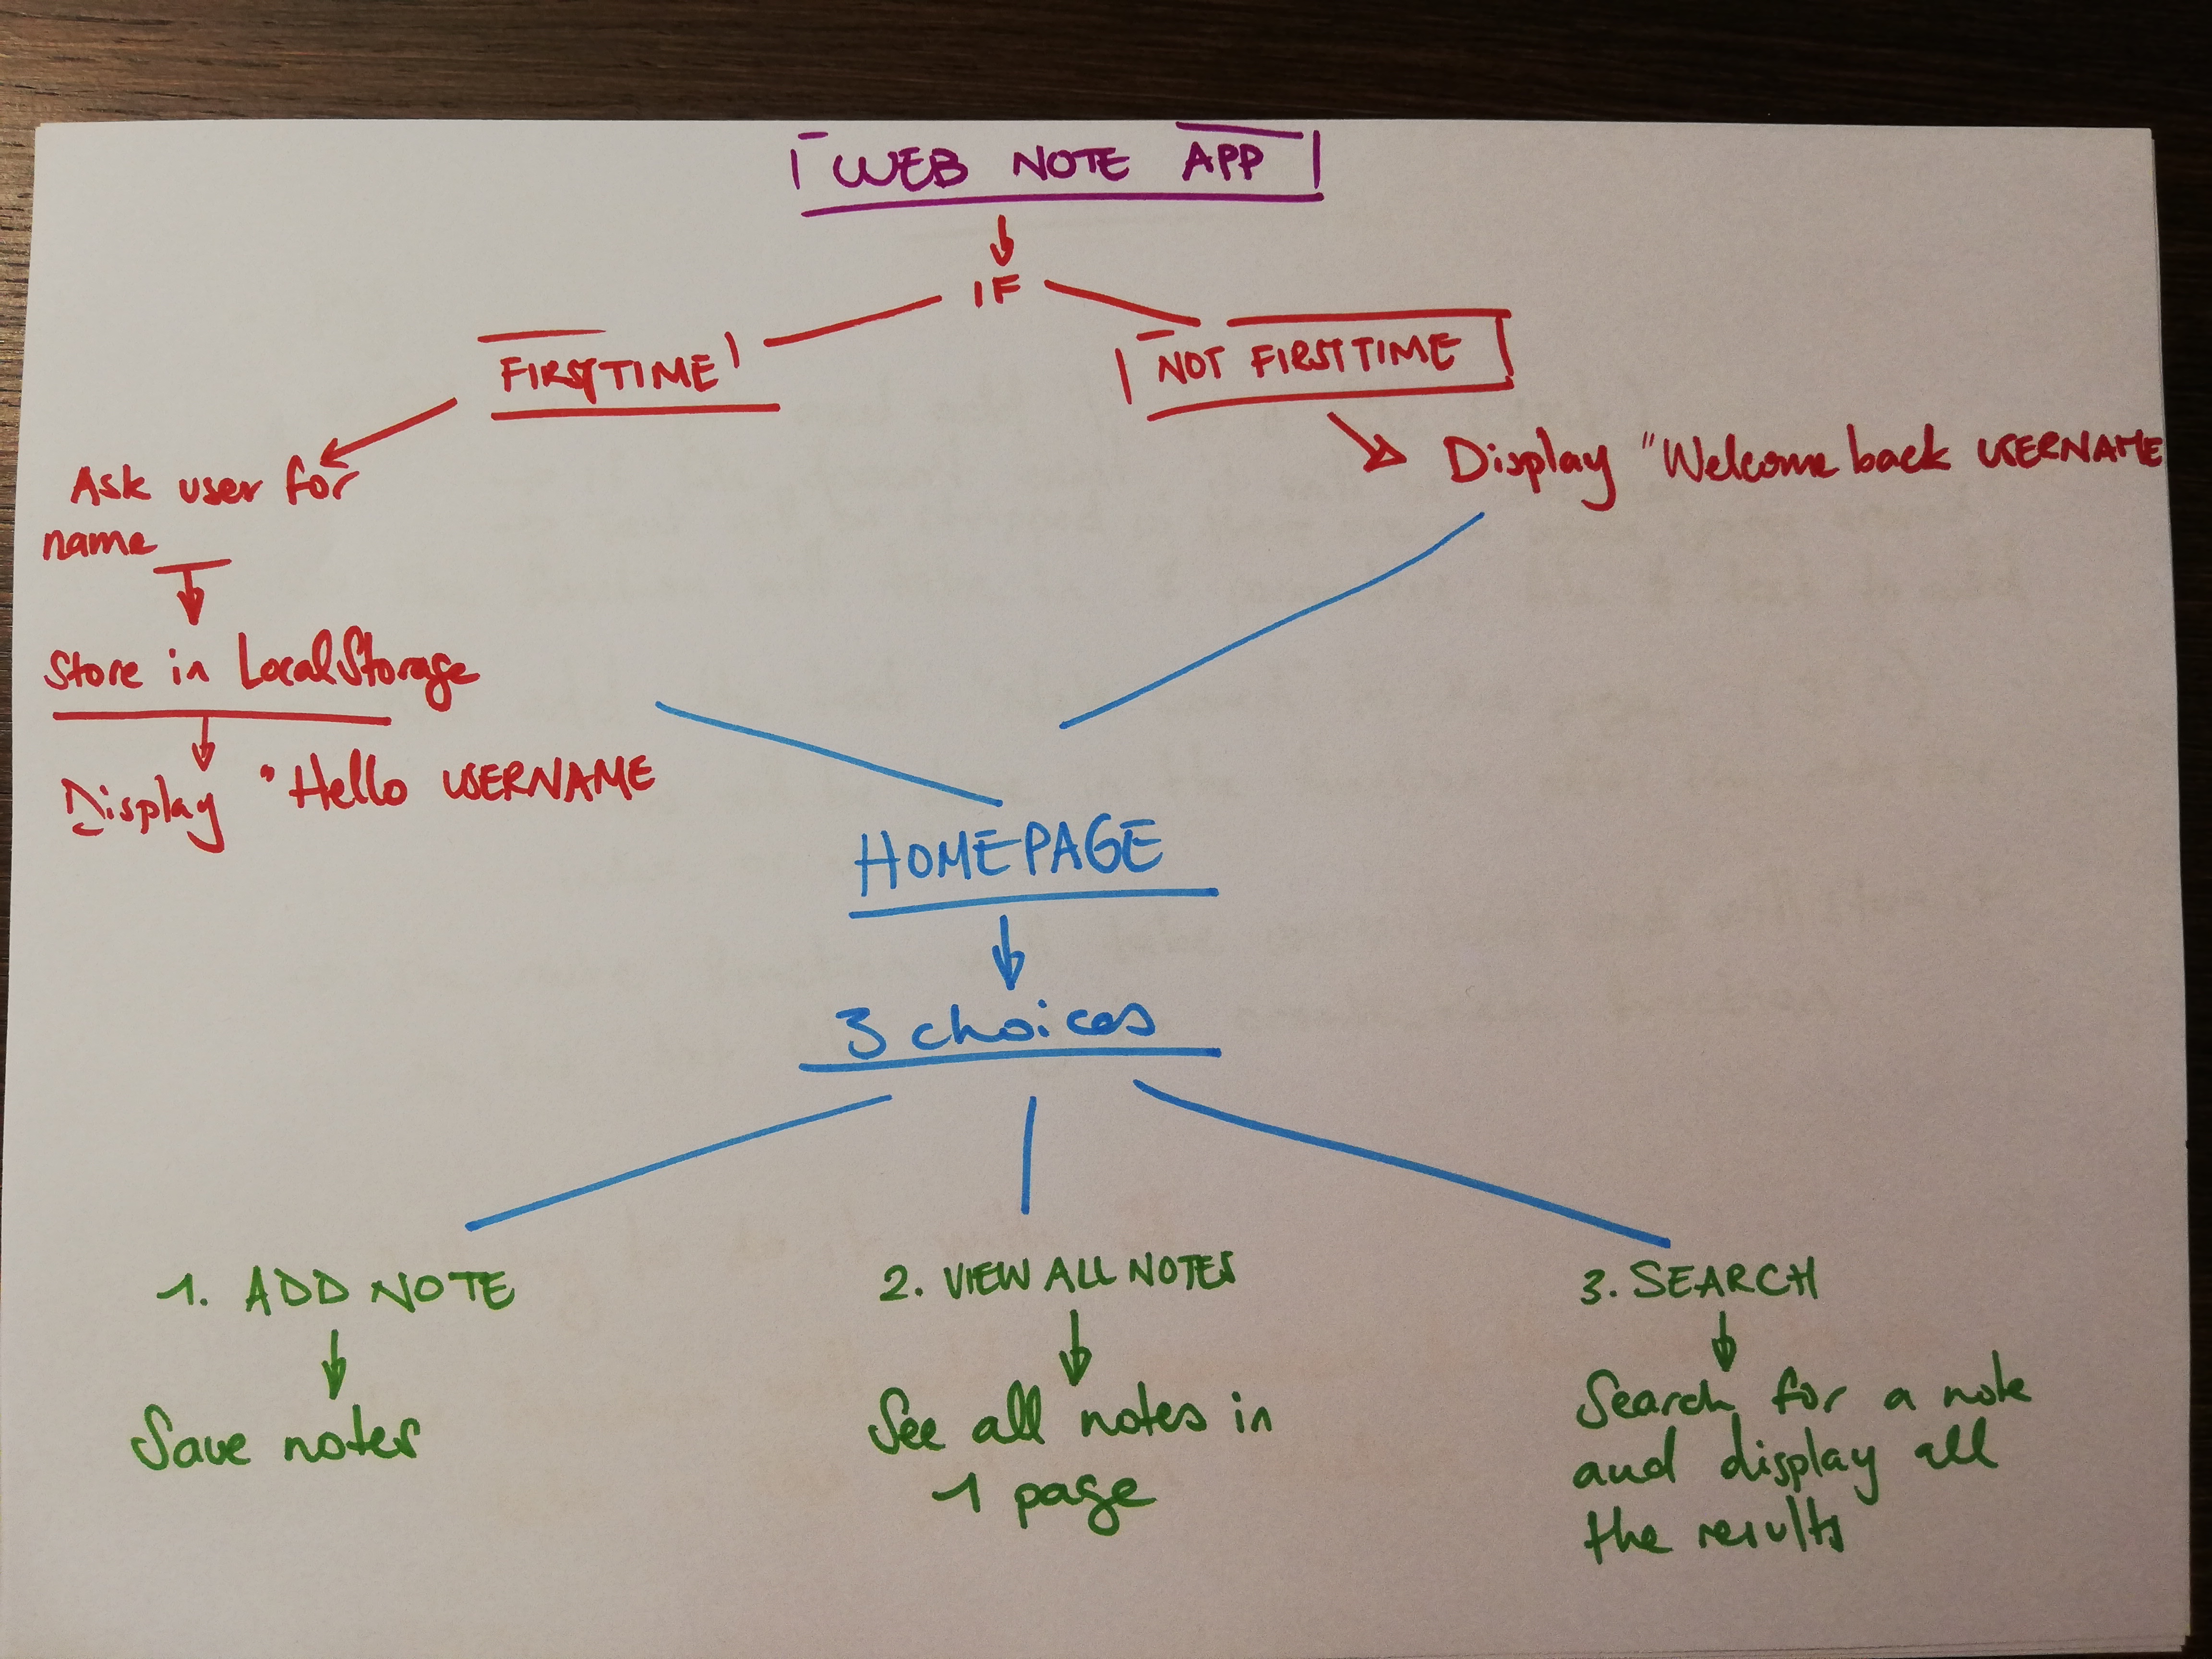 WEB NOTE APP
IF
FIRST TIME
NOT FIRST TIME
Ask user for
name
Store in LocalStorage
Display "Hello USERNAME
Display "Welcome back USERNAME
HOMEPAGE
3 choices
1. ADD NOTE
Save notes
2. VIEW ALL NOTES
See all notes in
1 page
3. SEARCH
Search for a note
and display all
the results